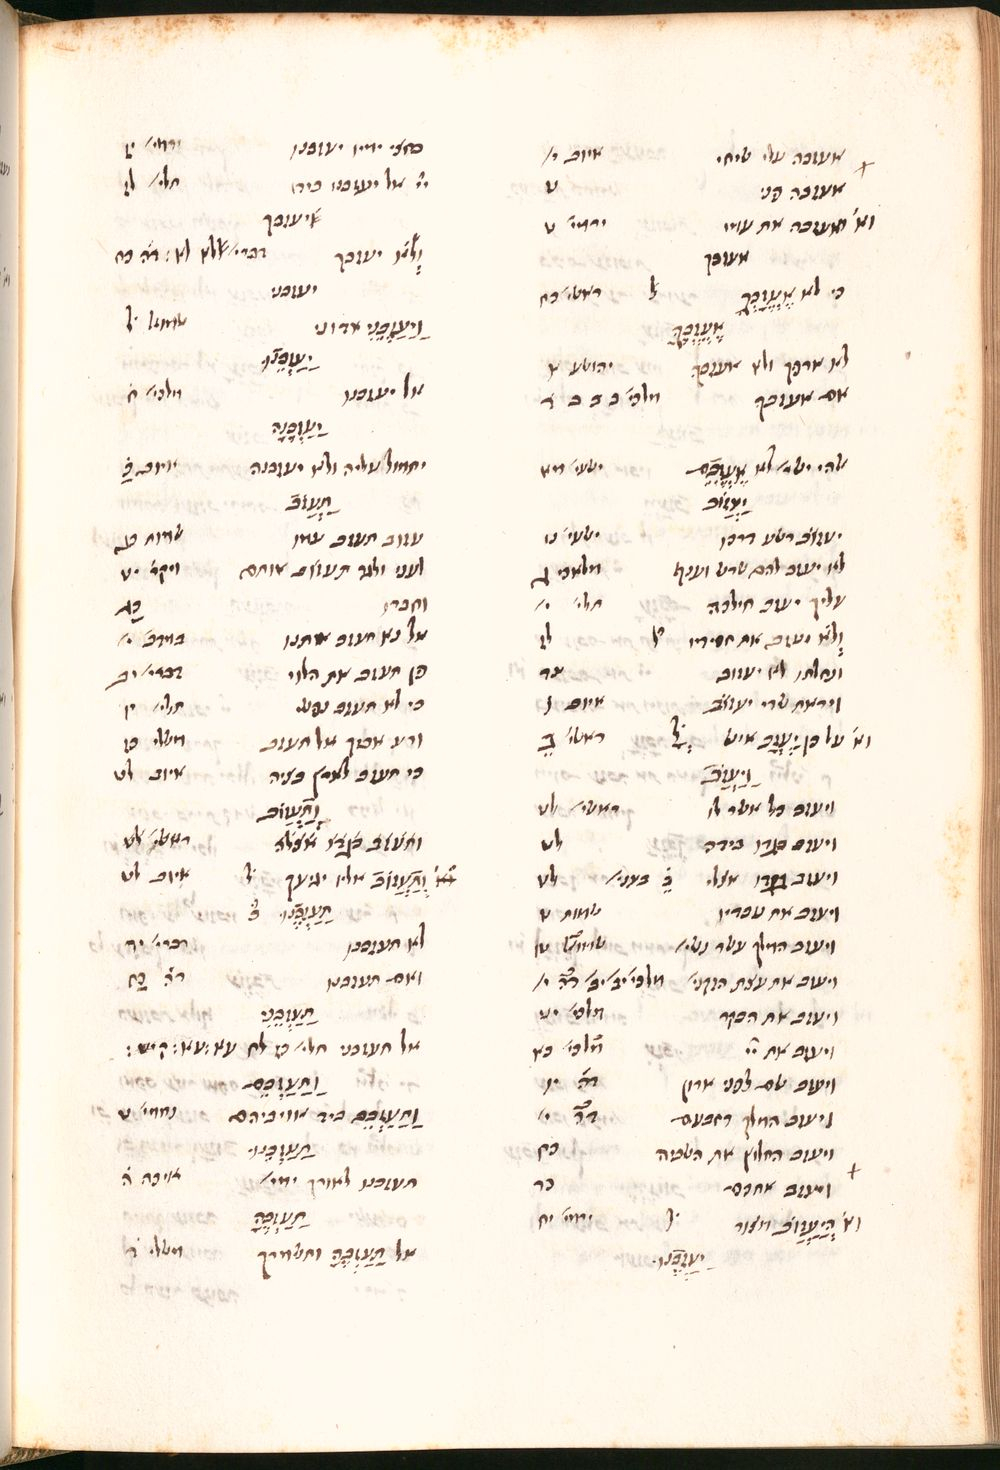 אעזבה עלי שיחי איוב י׳
אעזבה פני ט
וא׳ אעזבה את עמי ירמי׳ ט
אעזבך
כי לא אֶעֱזָבְךָ ל׳ ראשי׳ כח
אֶעֶזְבֶךָּ
לא ארפך ולא אעזבך יהושע א
אם אעזבך מלכי׳ ב ב ב ד
אלהי ישר׳ לא אֶעֶזְבֵם ישעי׳ מא
יַעֲזוֹב
יעזוב רשע דרכו ישעי׳ נו
לא יעזוב להם שרש וענף מלאכי ג
עליך יעזב חילכה תלי׳ י׳
וְלֹא יעזב את חסידיו ל׳ לז
ונחלתו לא יעזוב צד
ויראת שדי יעזוב איוב ו
וא׳ על כן יַעֲזָב איש ל׳ ראשי׳ ב
וַיַעֲזוֹב
ויעזב כל אשר לו ראשי׳ לט
ויעזב בגדו בידה לט
ויעזב בגדו אצלי ב׳ בעני׳ לט
ויעזב את עבדיו שמות ט
ויעזב המלך עשר נשי׳ שמואל טו
ויעזב את עצת הזקני׳ מלכי׳ יב׳ יב׳ דה׳ י׳
ויעזב את הבקר מלכי׳ יט
ויעזב את יי׳ מלכי׳ כא
ויעזב שם לפני ארון דה׳ יו
ויעזב המלך רחבעם דה׳ י׳
ויעזב החלוץ את השביה כח
ויעזב אתכם כד
וא׳ הֲיַעֲזוֹב מצור ל׳ ירמי׳ יח
יַעֲזְבֶנּוּ
בחצי ימיו יעזבנו ירמי׳ יז
יי׳ אל יעזבנו בידו תלי׳ לז
יעזבך
וְלֹא יעזבך דברי׳ לא: דה׳ כח
יעזבני
וַיַעַזְבֵנִי אדוני שמואל ל׳
יַעַזְבֵנוּ
אל יעזבנו מלכי׳ ח׳
יַעַזְבֶנָה
יחמול עליה ולא יעזבנה איוב כ׳
תַעֲזוֹב
עזוב תעזב עמו שמות כג
לעני ולגר תעזוב אותם ויקר׳ יט
וחברו כג
אל נא תעזב אתנו במדב׳ י׳
פן תעזב את הלוי דברי׳ יב
כי לא תעזב נפשי תלי׳ יו
ורע אביך אל תעזב משלי כז
כי תעזב לארץ בציה איוב לט
וְתַעֲזוֹב
ותעזב בגדו אצלה ראשי׳ לט
וא׳ וְתַעֲזוֹב אליו יגיעך ל׳ איוב לט
תַעַזְבֶנּוּ ב׳
לא תעזבנו דברי׳ יד
ואם תעזבנו דה׳ כח
תַעַזְבֵנִי
אל תעזבני תלי׳ כז לח עא: עא: קיט:
וַתַעַזְבֵם
וַתַעַזְבֵם ביד אויביהם נחמי׳ ט
תַעַזְבֵנוּ
תעזבנו לאורך ימי׳ איכה ה׳
תַעַזְבֶהָ
אל תַעַזְבֶהָ ותשמרך משלי ד׳